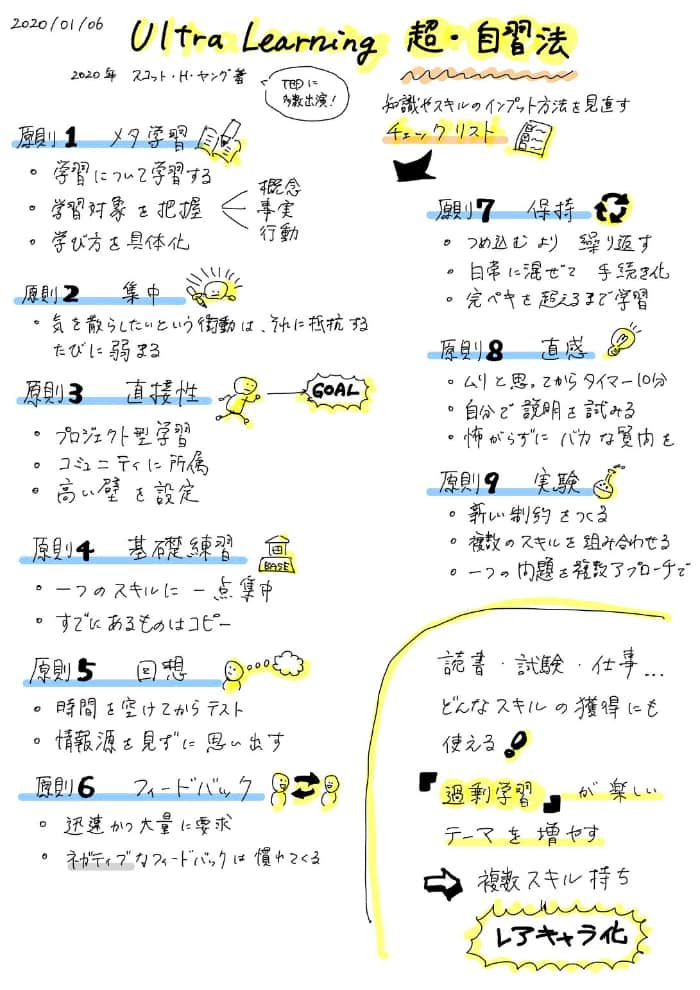 2020/01/06
Ultra Learning 超・自習法
2020年 スコット・H・ヤング著
TEDに
多数出演!
知識やスキルのインプット方法を見直す
チェックリスト
原則1 メタ学習
・学習について学習する
・学習対象を把握
概念
事実
行動
・学び方を具体化
原則2 集中
・気を散らしたいという衝動は、それに抵抗する
たびに弱まる
原則3 直接性
GOAL
・プロジェクト型学習
・コミュニティに所属
・高い壁を設定
原則4 基礎練習
BASE
・一つのスキルに一点集中
・すでにあるものはコピー
原則5 回想
・時間を空けてからテスト
・情報源を見ずに思い出す
原則6 フィードバック
・迅速かつ大量に要求
・ネガティブなフィードバックは慣れてくる
原則7 保持
・つめ込むより 繰り返す
・日常に混ぜて 手続き化
・完ペキを超えるまで学習
原則8 直感
・ムリと思ってからタイマー10分
・自分で説明を試みる
・怖がらずにバカな質問を
原則9 実験
・新しい制約をつくる
・複数のスキルを組み合わせる
・一つの問題を複数アプローチで
読書・試験・仕事...
どんなスキルの獲得にも
使える!
『過剰学習』が楽しい
テーマを増やす
⇒ 複数スキル持ち
レアキャラ化